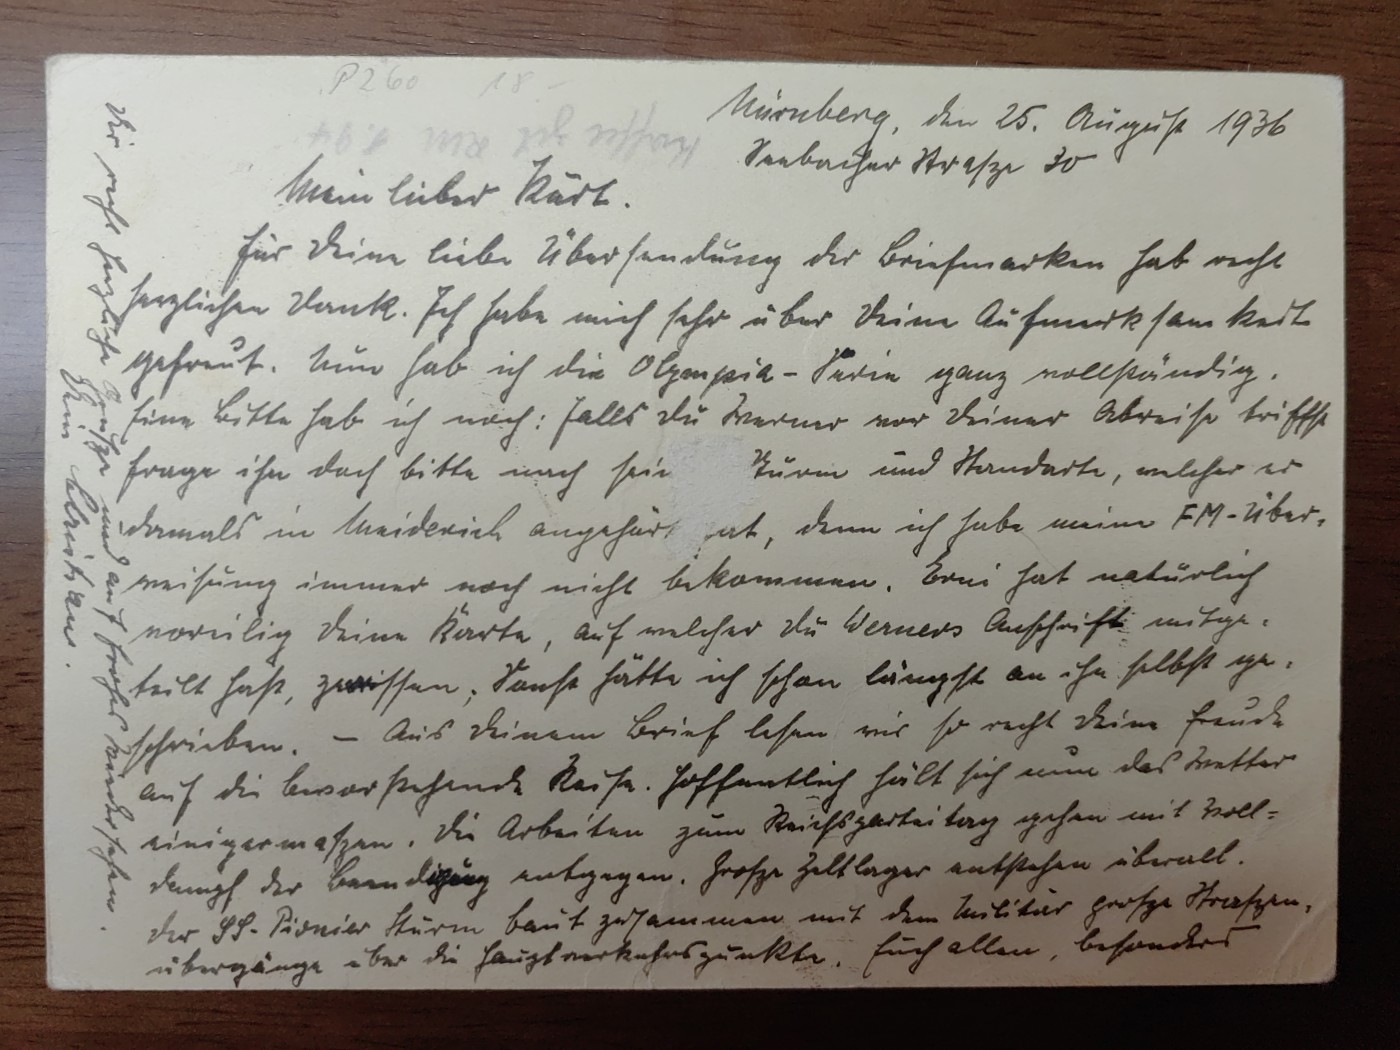 P260 18.-
Nürnberg, den 25. August 1936
Seebacher Strasze 30
Mein lieber Kurt.
Für Deine liebe Übersendung der Briefmarken hab recht
herzlichen Dank. Ich habe mich sehr über Deine Aufmerksamkeit
gefreut. Nun hab ich die Olympia-Serie ganz vollständig.
Eine Bitte hab ich noch: Falls du Werner vor Deiner Abreise triffst
frage ihn doch bitte nach sein Sturm und Standarte, welcher er
damals in Meiderich angehört hat, denn ich habe meine FM-Über-
weisung immer noch nicht bekommen. Erni hat natürlich
voreilig Deine Karte, auf welcher du Werners Anschrift mitge-
teilt hast, zerrissen, Sonst hätte ich schon längst an ihn selbst ge-
schrieben. — Aus Deinem Brief lesen wir so recht Deine Freude
auf die bevorstehende Reise. Hoffentlich hält sich nun das Wetter
einigermaszen. Die Arbeiten zum Reichsparteitag gehen mit Voll-
dampf der Beendigung entgegen. Grosze Zeltlager entstehen überall.
Der SS-Pionier Sturm baut zusammen mit dem Militär grosze Straszen-
übergänge über die Hauptverkehrspunkte. Euch allen, besonders
Dir recht herzliche Grüsze und auf frohes Wiedersehen.
Dein Christian.